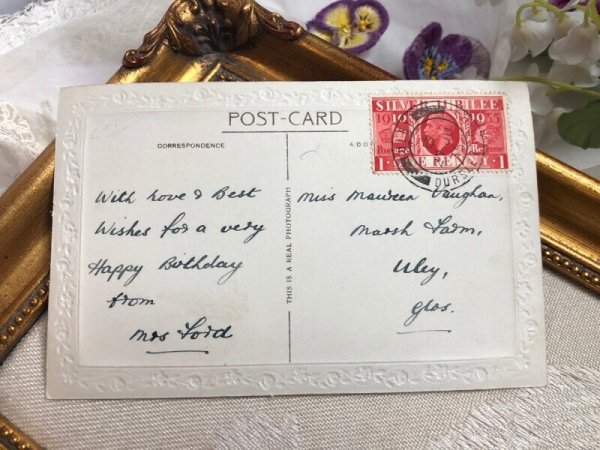 POST-CARD
CORRESPONDENCE
ADD
THIS IS A REAL PHOTOGRAPH
SILVER JUBILEE
1910 1935
Postage Revenue
ONE PENNY
1 1
With Love & Best
Wishes for a very
Happy Birthday
from
Mrs Ford
Miss Maureen Vaughan,
Marsh Farm,
Uley,
Glos.